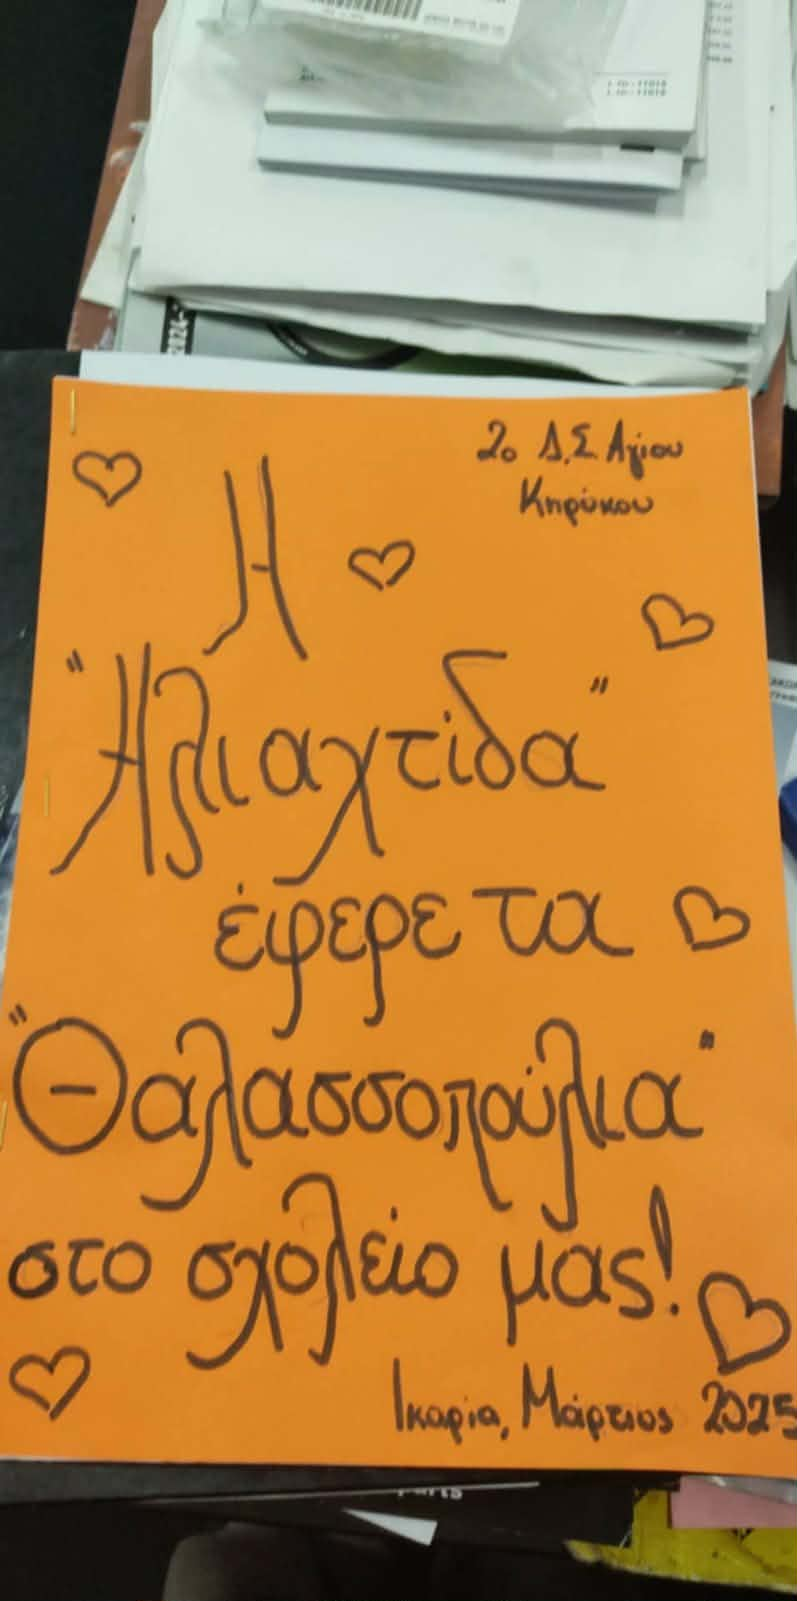 2ο Δ.Σ. Αγίου
Κηρύκου
Η
"Ηλιαχτίδα"
έφερε τα
"Θαλασσοπούλια"
στο σχολείο μας!
Ικαρία, Μάρτιος 2025